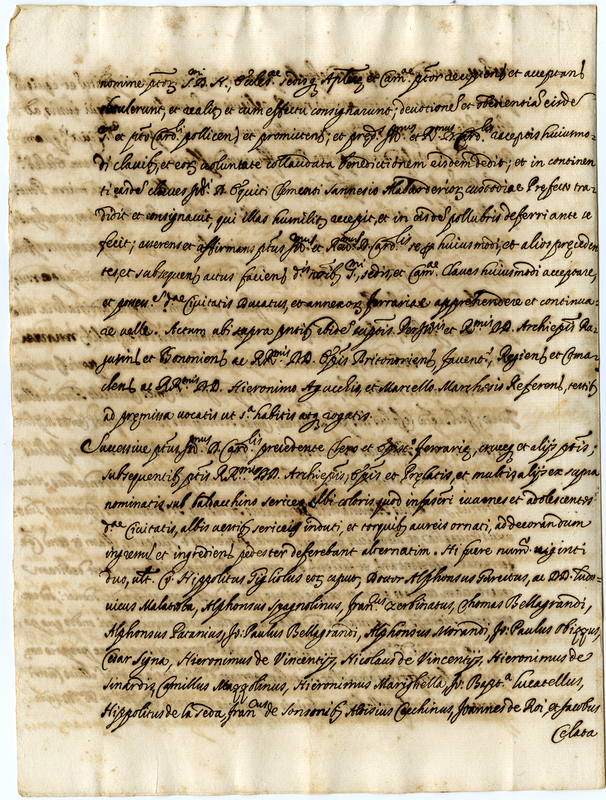 nomine ptoꝝ S.mi D. N., Eccles.ae sedisq Aplicę et Cam.ae ptor recipiens et acceptans
tulerunt, et realit et cum effectu consignarunt; devotionē et obedientiā eisdē
et pto Card. pollicen et promittens; et pred.s Ill.mus et R.mus D. Card.lis receptis huiusmo-
di clavib et eoꝝ voluntate collaudata benedictionem eisdem dedit; et in continen
ti easdē claves Ill. D. Equiti Clementi Sannesio custodiae Prefecto tra-
didit et consignavit, qui illas humilit accepit, et in eisdē pollubris deferri ante se
fecit; asserens et affirmans ptus Ill.mus et Rev.mus D. Card.lis se huiusmodi, et alios preceden
tes et subsequen actus faciens noib S.mi, sedis, et Cam.ae Claves huiusmodi acceptare,
et Civitatis Ducatus, et annexoꝝ ferrariae apprehendere et continua-
re velle. Actum ubi supra pntib ibidē R.mis DD. Archiepis Ra-
et Bononiens ac RR.mis DD. Epis Britonorien, favent., Regiens et Coma-
clens ac RR.mis DD. Hieronimo Agucchio, et Marcello Marchesio Referens, testib
ad premissa vocatis ut s.a habitis atq rogatis.
Successive ptus Ill.mus D. Card.lis precedente Clero et ferrarię, crucęq et alijs ptis;
subsequentib ptis RR.mis DD. Archiepis, Epis et Prelatis, et multis alijs ex supra
nominatis sub baldacchino sericeo albi coloris quod infascri iuvenes et adolescentes
d.ae Civitatis, albis vestib sericeis induti, et torquib aureis ornati, ad decorandum
ingressu et ingrediens pedester deferebant alternatim. Hi fuere num.o viginti
duo, ult. Hippolitus Gigliolus eoꝝ caput, Doctor Alphonsus ac DD. Ludo-
vicus Malatesta, Alphonsus Spagnolinus, Fran.cus Zerbinatus, Thomas Bellagrandi,
Alphonsus Paranius, Jo: Paulus Bellagrandi, Alphonsus Morandi, Jo: Paulus Obizzus,
Cesar Signa, Hieronimus de Vincentijs, Nicolaus de Vincentijs, Hieronimus de
Sinardis Camillus Mazzolinus, Hieronimus Marighella, Jo: Bapt.a Lucatellus,
Hippolitus de la Seda, Fran.cus de Aloisius Cecchinus, Joannes de Roi, et Jacobus
Celata